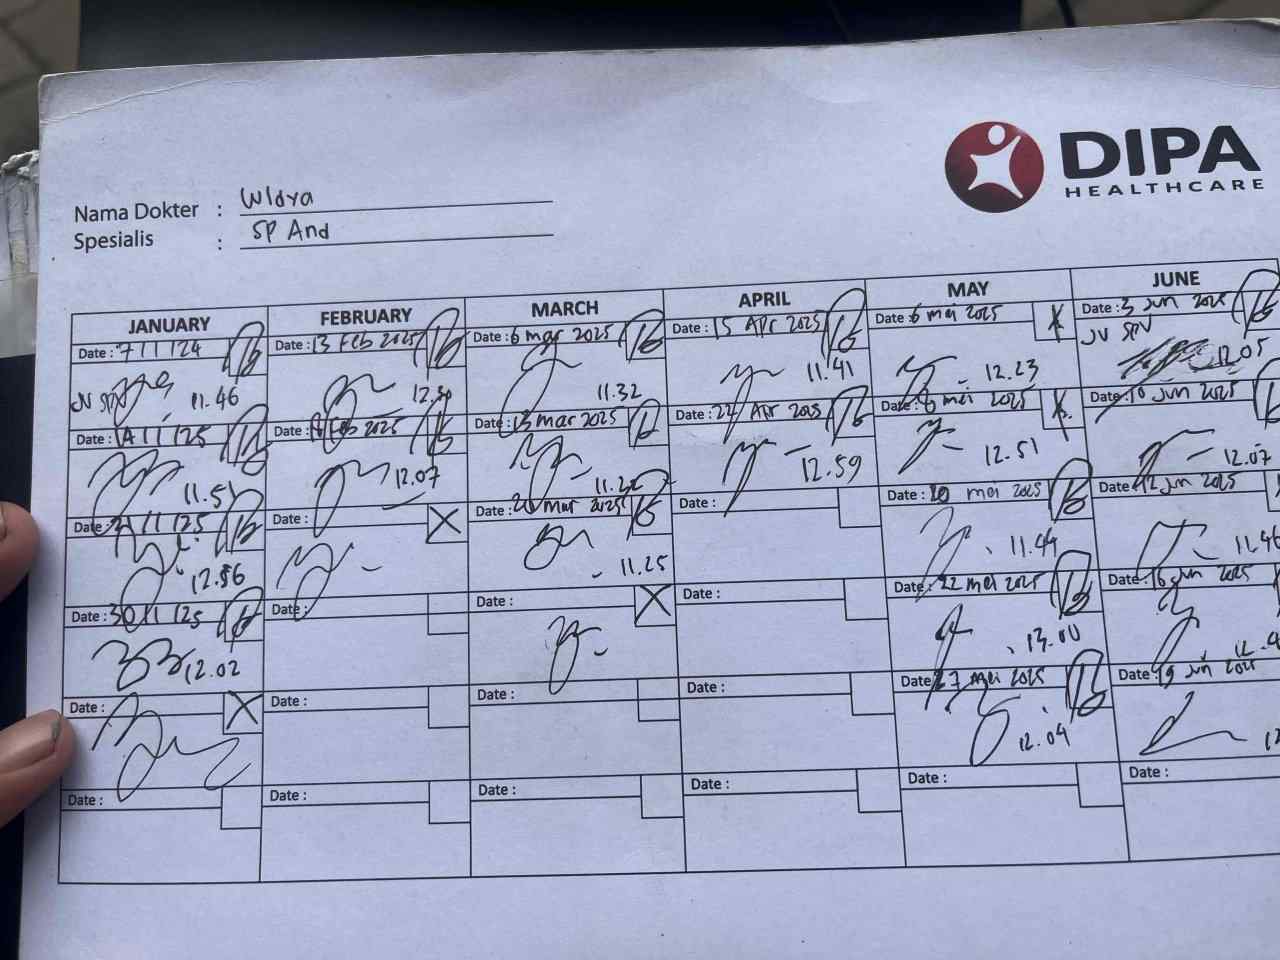 DIPA
HEALTHCARE
Nama Dokter : Widya
Spesialis : SP And
JANUARY FEBRUARY MARCH APRIL MAY JUNE
Date : 7/1/24 Date : 13 Feb 2025 Date : 6 mar 2025 Date : 15 Apr 2025 Date : 6 mei 2025 Date : 3 Jun 2025
JV SPV
JV SPV 11.46 11.32 11.41 12.23 12.05
Date : 14/1/25 Date : Feb 2025 Date : 13 mar 2025 Date : 22 Apr 2025 Date : mei 2025 Date : 10 Jun 2025
11.51 12.07 11.22 12.59 12.51 12.07
Date : 21/1/25 Date : Date : 20 Mar 2025 Date : Date : 20 mei 2025 Date : 12 Jun 2025
12.56 11.25 11.44
Date : 30/1/25 Date : Date : Date : Date : 22 mei 2025 Date : 16 Jun 2025
12.02 13.00
Date : Date : Date : Date : Date : 27 mei 2025 Date : 19 Jun 2025
12.04
Date : Date : Date : Date : Date : Date :